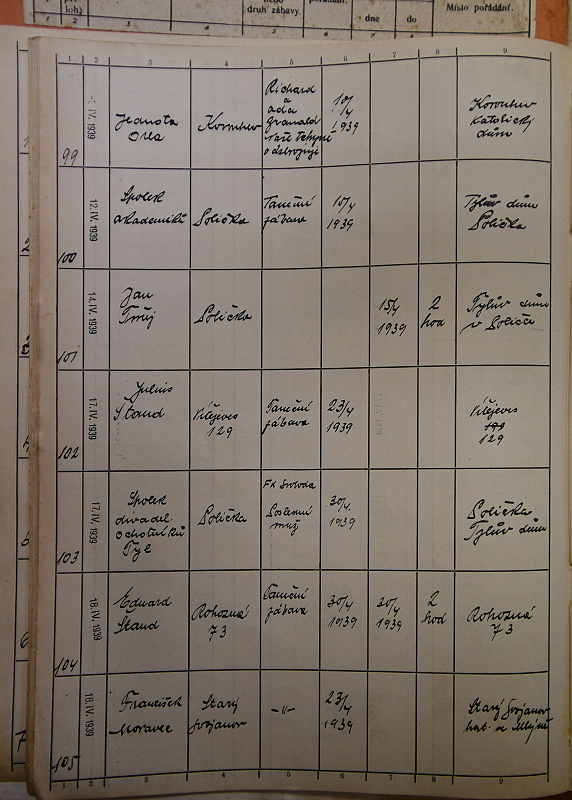 druh zábavy.
pořádání.
dne
do
Místo pořádání.
1 2 3 4 5 6 7 8 9
99
IV. 1939
Jednota
Orla
Korouhev
Richard
a
Ada
Granald
naše tetyně
odzbrojují
10/4
1939
Korouhev
Katolický
dům
100
12. IV. 1939
Spolek
akademiků
Polička
Taneční
zábava
10/4
1939
Tylův dům
Polička
101
14. IV. 1939
Jan
Polička
15/4
1939
2
hod
Tylův dům
v Poličce
102
17. IV. 1939
Julius
Štaud
Vítějeves
129
Taneční
zábava
23/4
1939
Vítějeves
129
103
17. IV. 1939
Spolek
divadel.
ochotníků
Tyl
Polička
Fx Svoboda
Poslední
muž
30/4
1939
Polička
Tylův dům
104
18. IV. 1939
Eduard
Staud
Rohozná
73
Taneční
zábava
30/4
1939
30/4
1939
2
hod
Rohozná
73
105
18. IV. 1939
František
Moravec
Starý
Svojanov
-"-
23/4
1939
Starý Svojanov
1 2 3 4 5 6 7 8 9